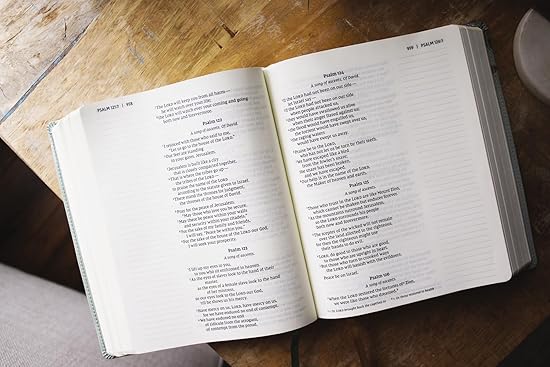 PSALM 121:7 | 938
⁷The LORD will keep you from all harm—
he will watch over your life;
⁸the LORD will watch over your coming and going
both now and forevermore.
Psalm 122
A song of ascents. Of David.
¹I rejoiced with those who said to me,
"Let us go to the house of the LORD."
²Our feet are standing
in your gates, Jerusalem.
³Jerusalem is built like a city
that is closely compacted together.
⁴That is where the tribes go up—
the tribes of the LORD—
to praise the name of the LORD
according to the statute given to Israel.
⁵There stand the thrones for judgment,
the thrones of the house of David.
⁶Pray for the peace of Jerusalem:
"May those who love you be secure.
⁷May there be peace within your walls
and security within your citadels."
⁸For the sake of my family and friends,
I will say, "Peace be within you."
⁹For the sake of the house of the LORD our God,
I will seek your prosperity.
Psalm 123
A song of ascents.
¹I lift up my eyes to you,
to you who sit enthroned in heaven.
²As the eyes of slaves look to the hand of their
master,
as the eyes of a female slave look to the hand
of her mistress,
so our eyes look to the LORD our God,
till he shows us his mercy.
³Have mercy on us, LORD, have mercy on us,
for we have endured no end of contempt.
⁴We have endured no end
of ridicule from the arrogant,
of contempt from the proud.
939 | PSALM 126:1
Psalm 124
A song of ascents. Of David.
¹If the LORD had not been on our side—
let Israel say—
²if the LORD had not been on our side
when people attacked us,
³they would have swallowed us alive
when their anger flared against us;
⁴the flood would have engulfed us,
the torrent would have swept over us,
⁵the raging waters
would have swept us away.
⁶Praise be to the LORD,
who has not let us be torn by their teeth.
⁷We have escaped like a bird
from the fowler's snare;
the snare has been broken,
and we have escaped.
⁸Our help is in the name of the LORD,
the Maker of heaven and earth.
Psalm 125
A song of ascents.
¹Those who trust in the LORD are like Mount Zion,
which cannot be shaken but endures forever.
²As the mountains surround Jerusalem,
so the LORD surrounds his people
both now and forevermore.
³The scepter of the wicked will not remain
over the land allotted to the righteous,
for then the righteous might use
their hands to do evil.
⁴LORD, do good to those who are good,
to those who are upright in heart.
⁵But those who turn to crooked ways
the LORD will banish with the evildoers.
Peace be on Israel.
Psalm 126
A song of ascents.
¹When the LORD restored the fortunes of Zion,
we were like those who dreamed.